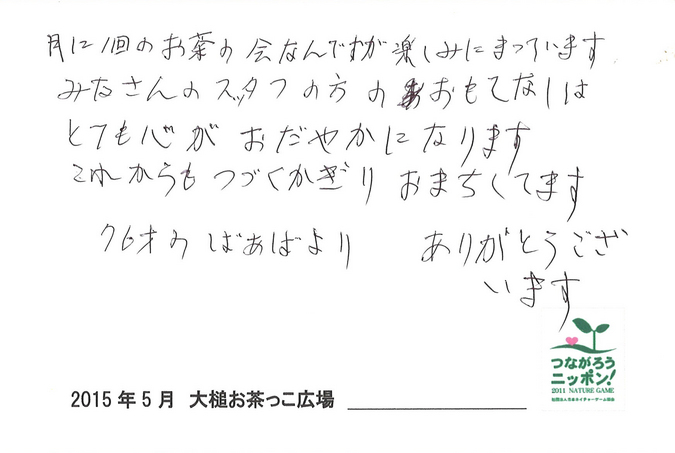 月に1回のお茶の会なんですが楽しみにまっています
みなさんのスタフの方のおもてなしは
とても心がおだやかになります
これからもつづくかぎりおまちしてます
76才のばあばより ありがとうござ
います
つながろう
ニッポン!
2011 NATURE GAME
社団法人日本ネイチャーゲーム協会
2015年5月 大槌お茶っこ広場